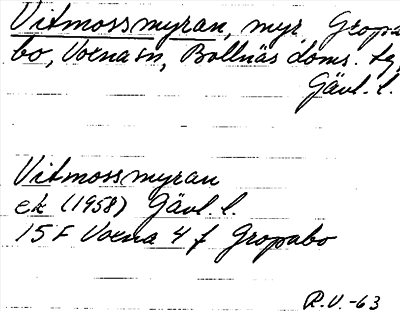 Vitmossmyran, myr, Gropa-
bo, Voxna sn, Bollnäs doms. tg,
Gävl. l.
Vitmossmyran
ek (1958) Gävl. l.
15 F Voxna 4 f Gropabo
R.V.-63